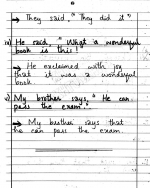 → They said, "They did it"
iv) He said, "What a wonderful
book is this!"
→ He exclaimed with joy
that it was a wonderful
book.
v) My brother says, "He can
pass the exam."
→ My brother says that
he can pass the exam.